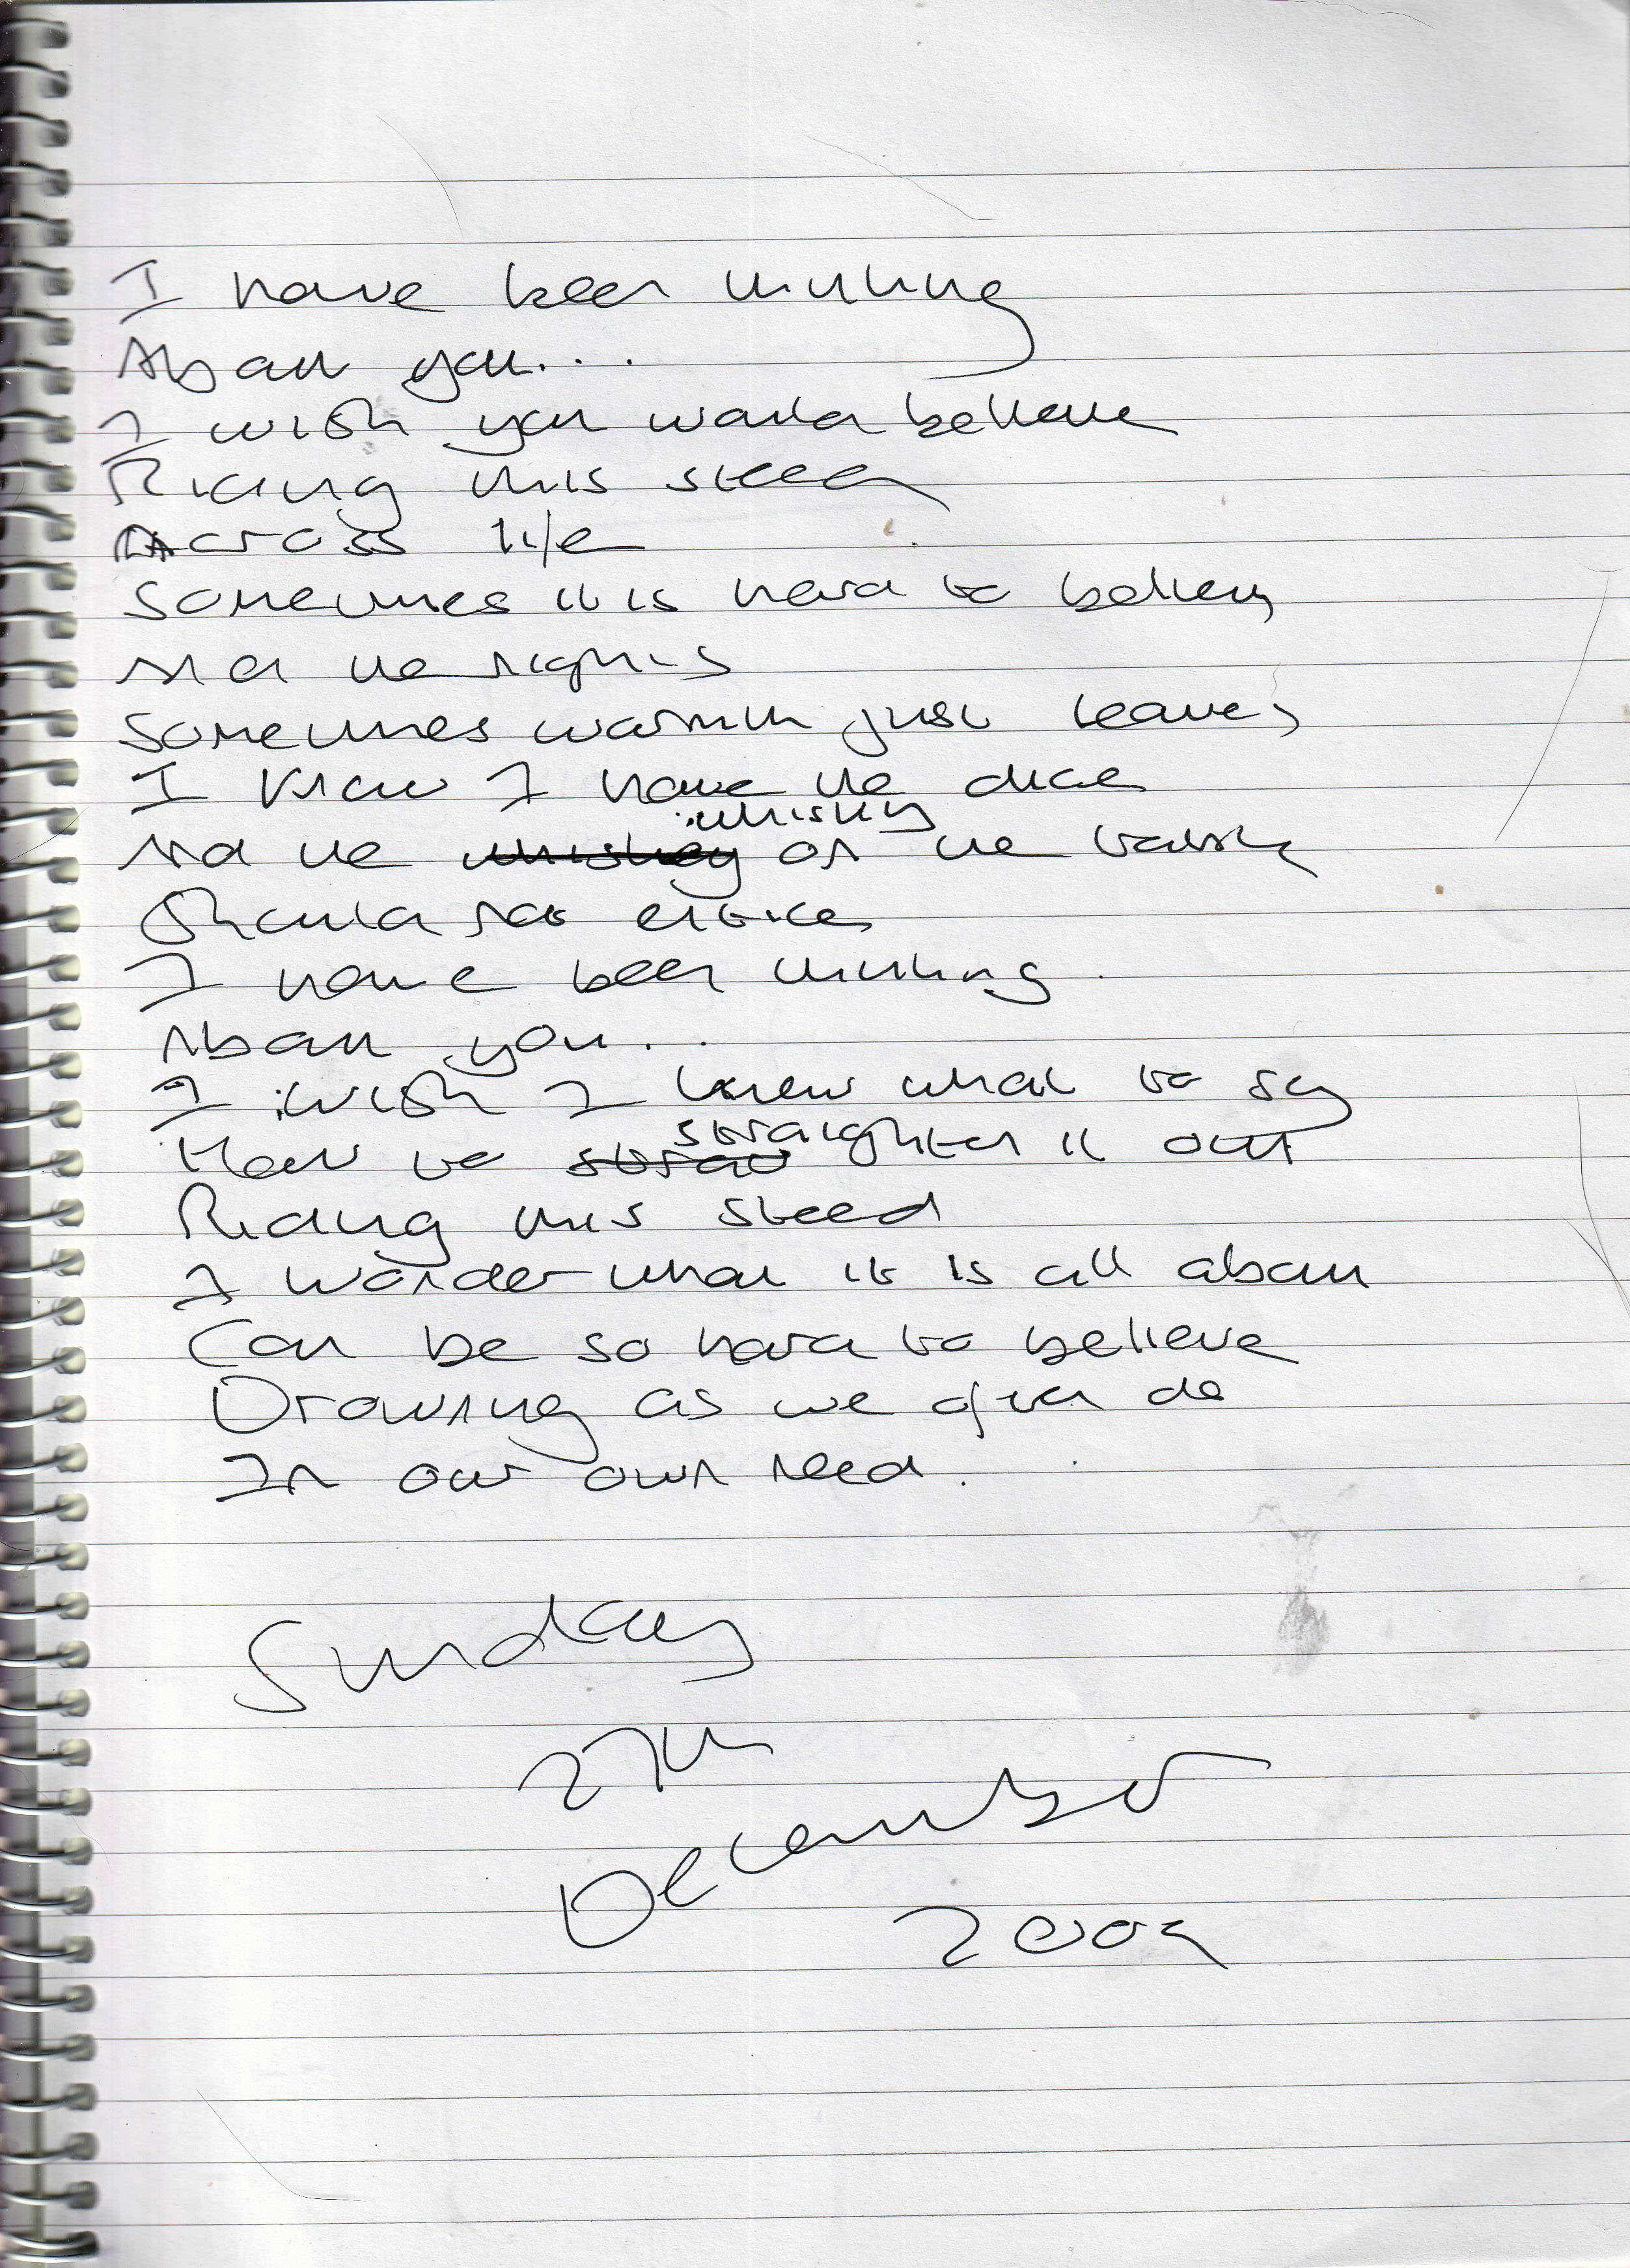 I have been thinking
About you...
I wish you would believe
Riding this steed
Across life
Sometimes it is hard to believe
And the nights
Sometimes warmth just leaves
I know I have the dice
And the whiskey whisky on the table
Should not entice
I have been thinking.
About you...
I wish I knew what to say
How to strao straighten it out
Riding this steed
I wonder what it is all about
Can be so hard to believe
Drowning as we often do
In our own need.
Sunday
27th
December
2009